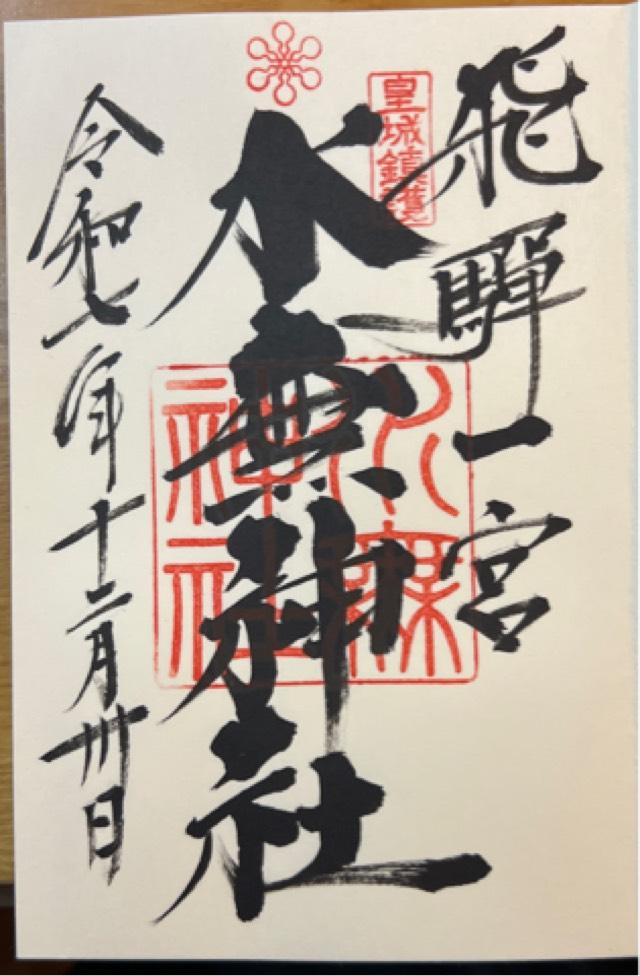 飛騨一宮
皇城鎮護
水無神社
水無
神社
令和七年十二月卅日